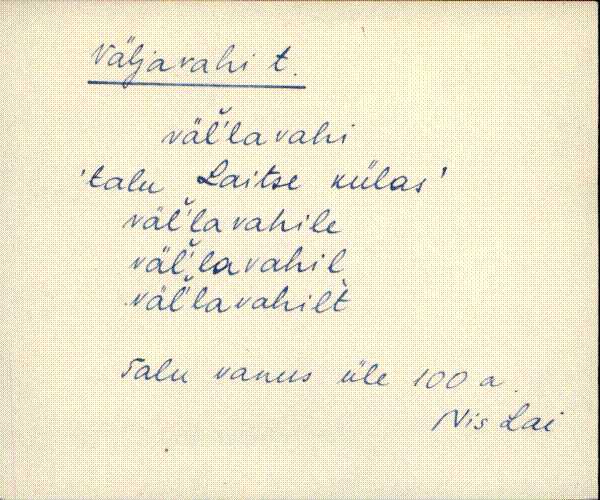 Väljavahi t.
väl̆'lavahi
'talu Laitse külas'
väl̆'lavahile
väl̆'lavahil
väl̆'lavahilt̀
Talu vanus üle 100 a.
Nis Lai